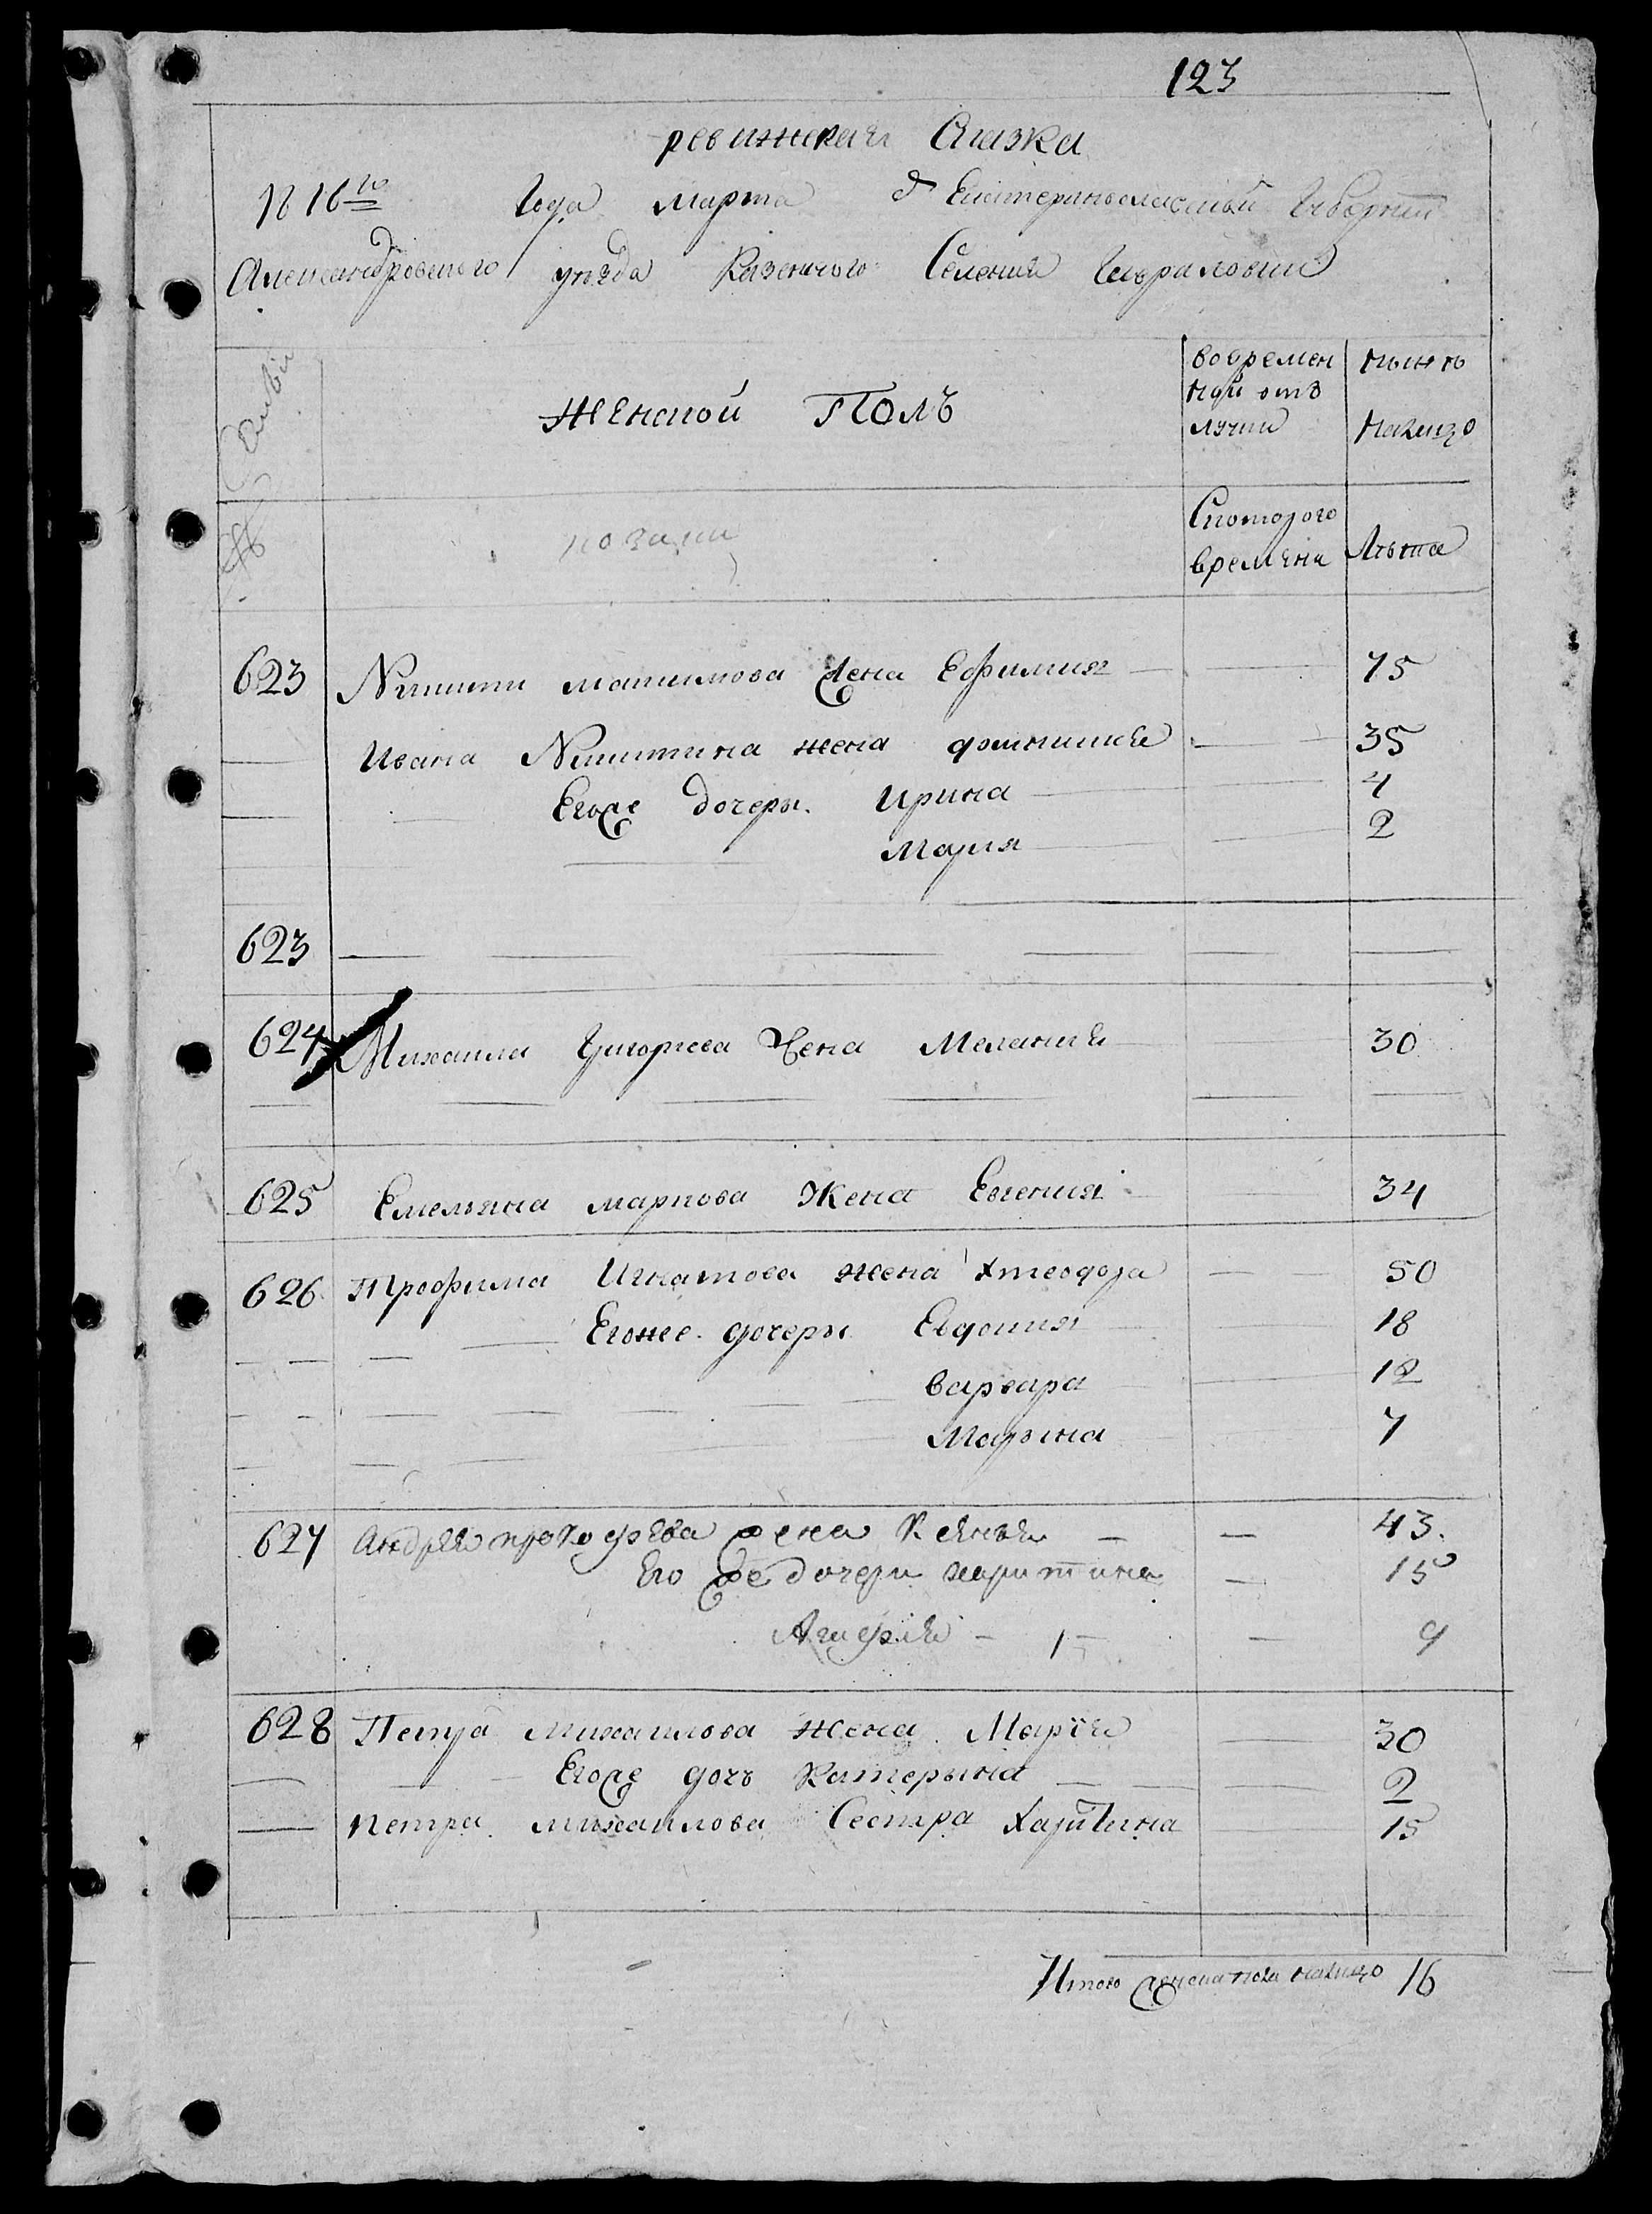 123
ревижская Сказка
1816го Года Марта д Екатеринославской Губернии
Александровского уезда Казенного Селения Гавриловки
Семьи
Женской Полъ
вовремен
ной отъ
лучки
нынъ
налицо
№
Скоторого
времени
Лъта
623 Никиты макимова Жена Ефимия 75
Ивана Никитина жена 35
Егоже дочеры Ирина 4
Мария 2
623
624 Михаила Григорева Жена Мелания 30
625 Емельяна маркова Жена Евгения 34
626 Трофима Игнатова жена Хтеодора 50
Егоже дочеры Евдокия 18
варвара 12
Марына 7
627 Андрея прокофева жена Ксенья 43.
Его же дочери харитина 15
9
628 Петра михаилова жена Марія 30
Егоже дочь Катерына 2
петра михаилова Сестра Харитина 15
Итого женска пола налицо 16